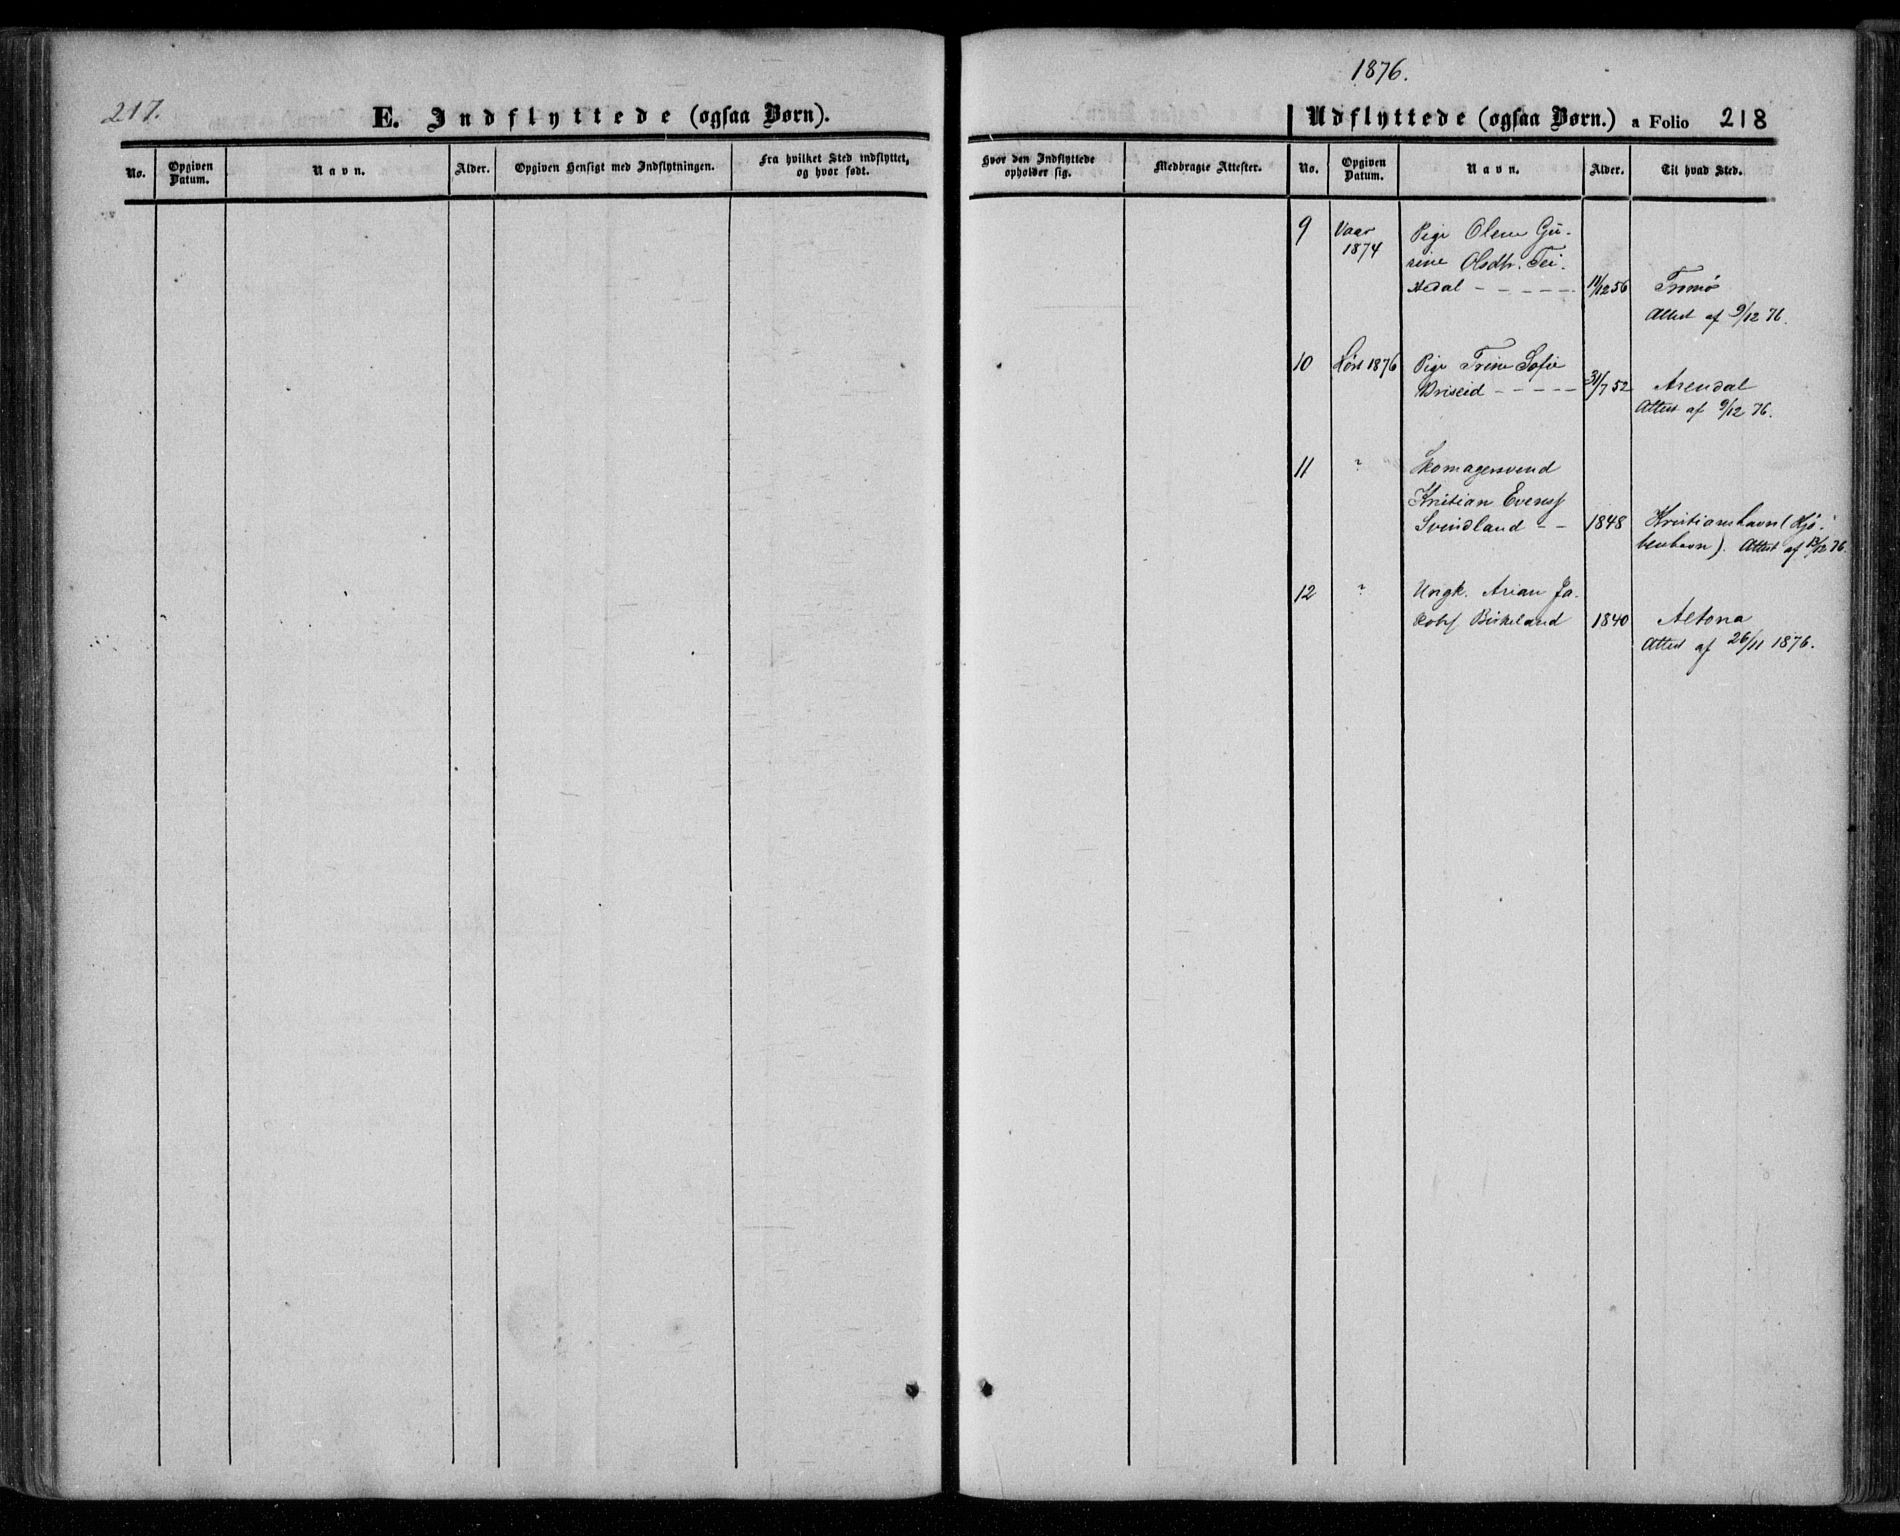 217.
E. Indflyttede (ogsaa Børn).
No.
Opgiven
Datum.
Navn.
Alder.
Opgiven Hensigt med Indflytningen.
Fra hvilket Sted indflyttet,
og hvor født.
1876.
Udflyttede (ogsaa Børn.) a Folio 218
Hvor den Indflyttede
opholder sig.
Medbragte Attester.
No.
Opgiven
Datum.
Navn.
Alder.
Til hvad Sted.
9 Vaar Pige Olene Gu-
1874 rine Olsdtr. Tei-
11/12 56 Tromø
Attest af 9/12 76.
10 Høst 1876 Pige Trine Sofie
Briseid - - - - - 31/7 52 Arendal
Attest af 9/12 76.
11 ? Skomagersvend
Kristian Evens
Svindland - - 1848 Kristianshavn (Kjø-
benhavn). Attest af 13/12 76.
12 ? Ungk. Arian Ja-
kobs Birkeland 1840 Altona
Attest af 26/11 1876.